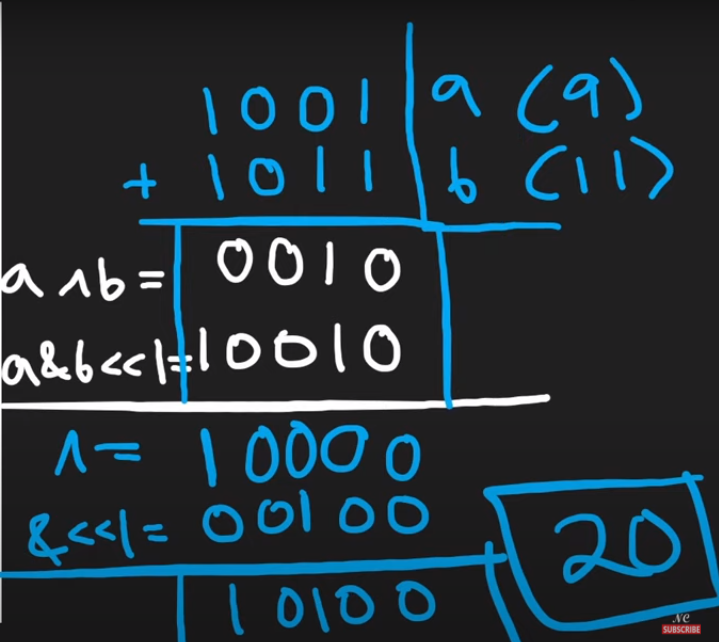 1001 a (9)
+ 1011 b (11)
a ^ b = 0010
a&b<<1=10010
^= 10000
&<<1= 00100
10100
20
NC
SUBSCRIBE